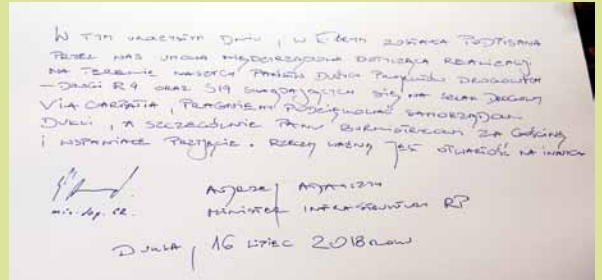 W TYM UROCZYSTYM DNIU, W KTÓRYM ZOSTAŁA PODPISANA
PRZEZ NAS UMOWA MIĘDZYRZĄDOWA DOTYCZĄCA REALIZACJI
NA TERENIE NASZYCH PAŃSTW DUŻYCH PROJEKTÓW DROGOWYCH
– DROGI R4 ORAZ S19 SKŁADAJĄCYCH SIĘ NA SZLAK DROGOWY
VIA CARPATIA, PRAGNIEMY PODZIĘKOWAĆ SAMORZĄDOWI
DUKLI, A SZCZEGÓLNIE PANU BURMISTRZOWI ZA GOŚCINĘ
I WSPANIAŁE PRZYJĘCIE. RZECZĄ WAŻNĄ JEST OTWARTOŚĆ NA INNYCH
ANDRZEJ ADAMCZYK
min. dop. SR.
MINISTER INFRASTRUKTURY RP
DUKLA, 16 LIPIEC 2018 ROKU